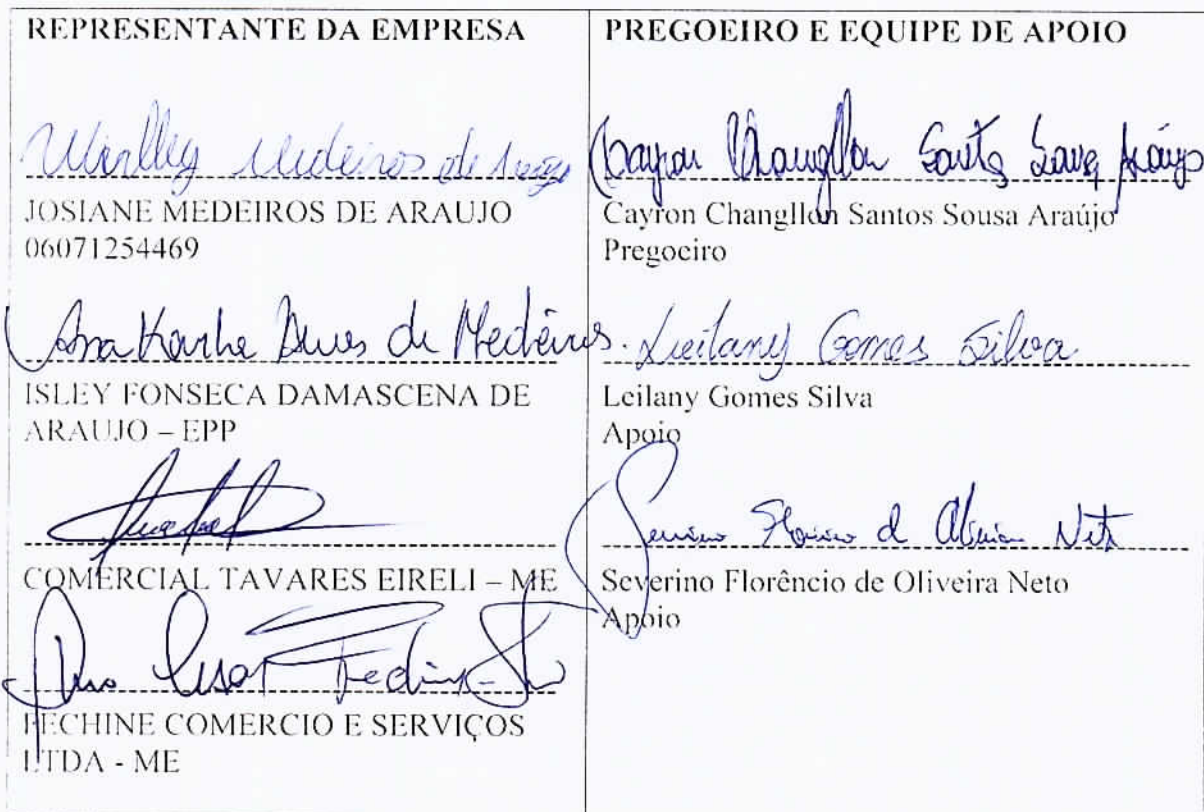 REPRESENTANTE DA EMPRESA
Medeiros de
JOSIANE MEDEIROS DE ARAUJO
06071254469
Ana Karlha Alves de Medeiros
ISLEY FONSECA DAMASCENA DE
ARAUJO – EPP
COMERCIAL TAVARES EIRELI – ME
Cesar Fechine
FECHINE COMERCIO E SERVIÇOS
LTDA - ME
PREGOEIRO E EQUIPE DE APOIO
Cayron Changllon Santos Sousa Araújo
Cayron Changllon Santos Sousa Araújo
Pregoeiro
Leilany Gomes Silva
Leilany Gomes Silva
Apoio
Severino Florêncio de Oliveira Neto
Severino Florêncio de Oliveira Neto
Apoio